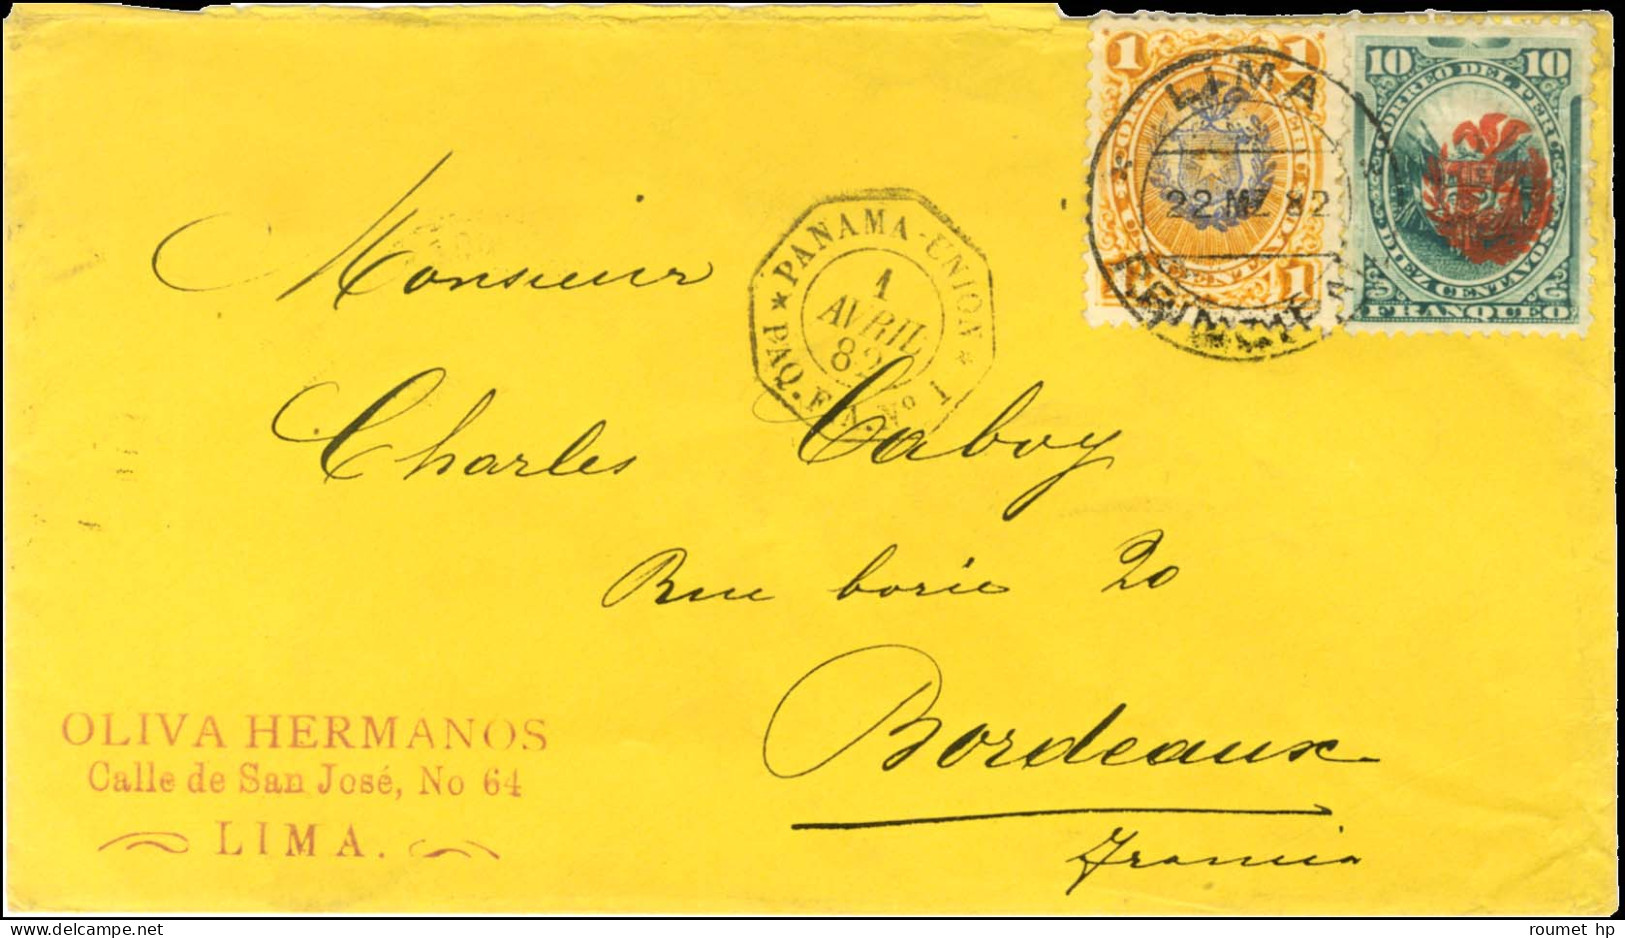 1 1
LIMA
22 MZ 82
PRINCIPAL
1
10 10
CORREO DEL PERU
DIEZ CENTAVOS
FRANQUEO
PANAMA-UNION
1
AVRIL
82
PAQ. FR. A. No 1
Monsieur
Charles Caboy
Rue borie 20
Bordeaux
Francia
OLIVA HERMANOS
Calle de San José, No 64
LIMA.
delcampe.net
roumet hp